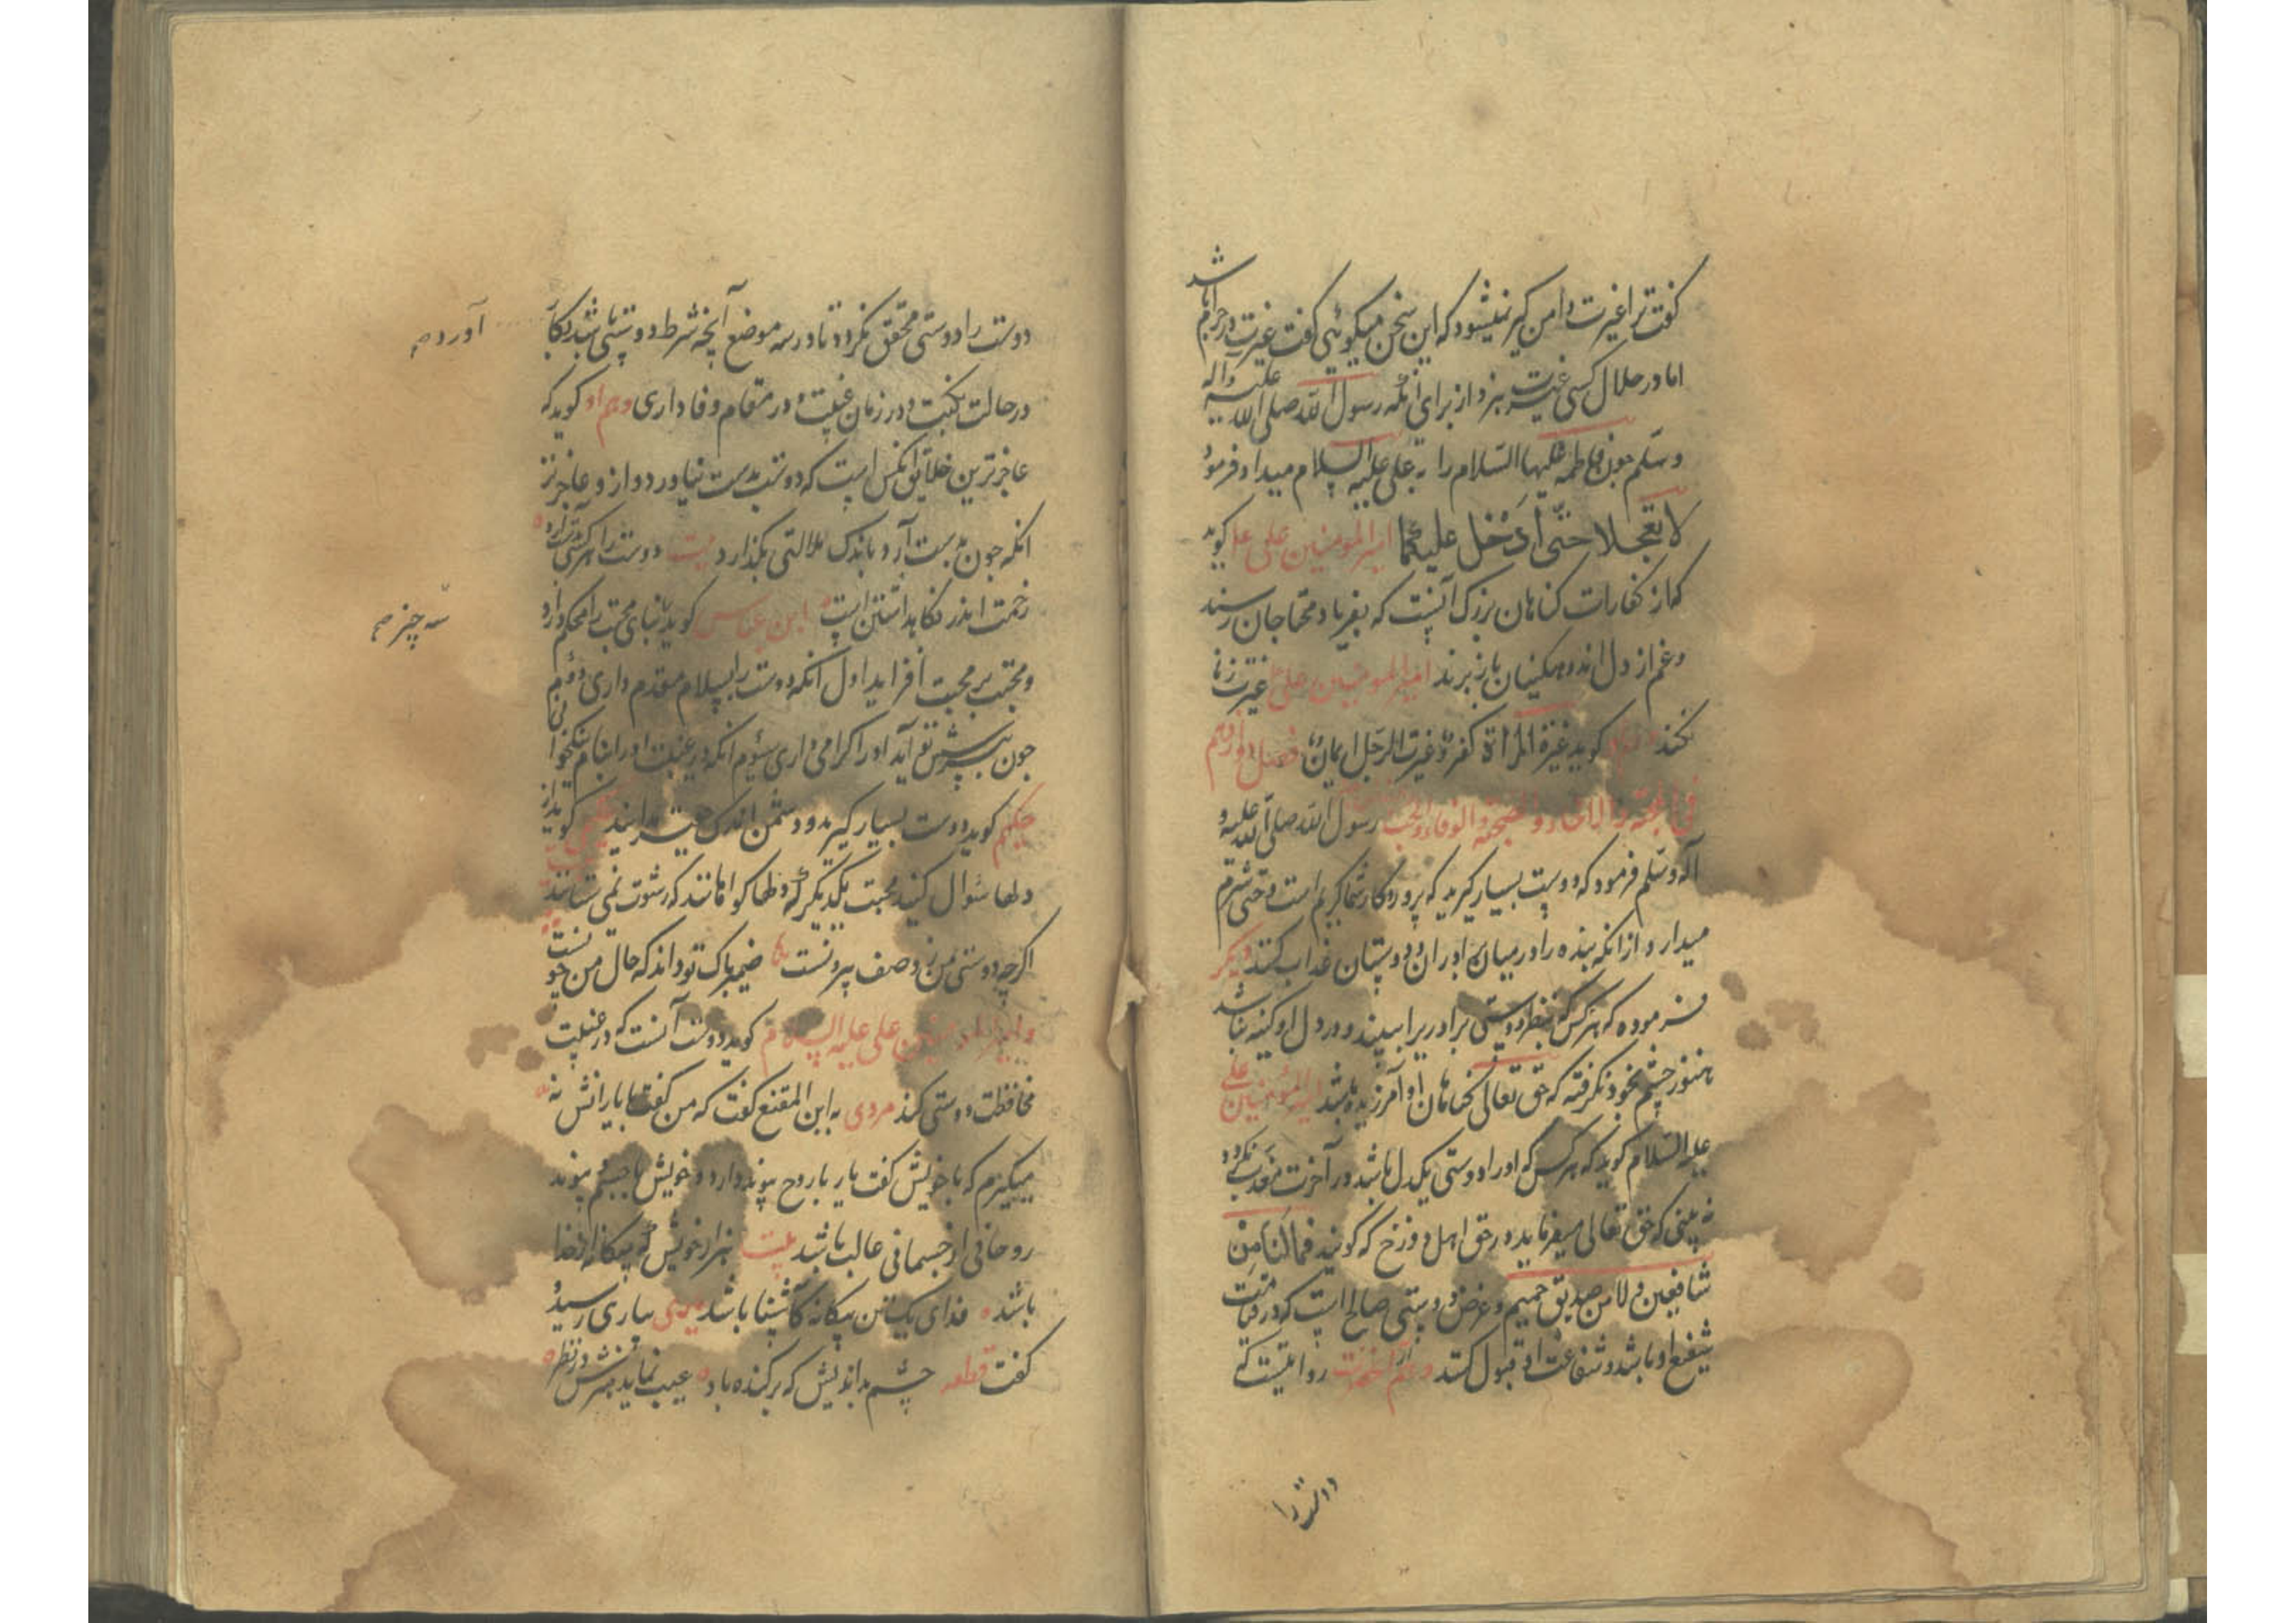 کفت ترا غیرت دامن کیر نمیشود که این سخن میکوئی کفت غیرت در حرام باشد
اما در حلال کسی غیرت نبرد از برای آنکه رسول الله صلی الله علیه و اله
وسلم چون فاطمه علیها السلام را به علی علیه السلام میداد فرمود
لا تعجلا حتی أدخل علیکما امیر المومنین علی ع کوید
که از کفارات کناهان بزرک آنست که بفریاد محتاجان رسند
و غم از دل اندوهکینان باز برند امیر المومنین علی ع غیرت زنا
نکند کوید غیرة المرأة کفر و غیرت الرجل ایمان فصل نوزدهم
فی و الوفاء و رسول الله صلی الله علیه و
آله وسلم فرمود که دوست بسیار کیرید که پروردکار شما کریم است و حی شرم
میدارد از انکه بنده را در میان برادران و دوستان عذاب کند دیکر
فرموده که هرکس که بنظر دوستی برادریرا ببیند و در دل او کینه نباشد
هنوز چشم بخود نکرفته که حق تعالی کناهان او آمرزیده باشد امیر المؤمنین علی
علیه السلام کوید که هرکس که اورا دوستی یکدل باشد در آخرت معذب نکردد
نه بینی که حق تعالی میفرماید در حق اهل دوزخ که کویند فما لنا من
شافعین و لا صدیق حمیم و غرض دوستی صالح است که در قیامت
شفیع او باشد و شفاعت او قبول کنند و هم از آنحضرت روایتست که
دوست را
دوست را دوستی محقق نکردد تا در سه موضع آنچه شرط دوستی باشد بجا آورد
در حالت نکبت و در زمان غیبت و در مقام وفاداری و هم او کوید که
عاجزترین خلایق آنکس است که دوست بدست نیاورد و از و عاجزتر
انکه چون بدست آرد باندک ملالتی بکذارد بیت دوست را
زحمت اندر نکاهداشتن است ابن عباس کوید بنای محبت را محکم دارد
سه چیز
و محبت بر محبت افزاید اول انکه دوست را بسلام مقدم داری دوم
چون به پرسش تو آید اورا کرامی داری سیوم انکه در غیبت اورا بنام نیکو خوانی
حکیم کوید دوست بسیار کیرید و دشمن اندک کوید از
دلها سؤال کنید محبت یکدیکر که دلها کواهانند که رشوت نمی ستانند
اکرچه دوستی من ز وصف بیرونست ضمیر پاک تو داند که حال من چونست
و امیر المؤمنین علی علیه السلام کوید دوست آنست که در غیبت
محافظت دوستی کند مردی به ابن المقنع کفت که من کفت با یار انس نه
میکیرم که با خویش کفت یار با روح پیوند دارد و خویش با جسم پیوند
روحانی از جسمانی غالب باشد بیت هزار خویش که بیکانه از خدا
باشد فدای یک تن بیکانه کاشنا باشد مردی بیاری رسید و
کفت قطعه چشم بداندیش که برکنده باد عیب نماید هنرش در نظر